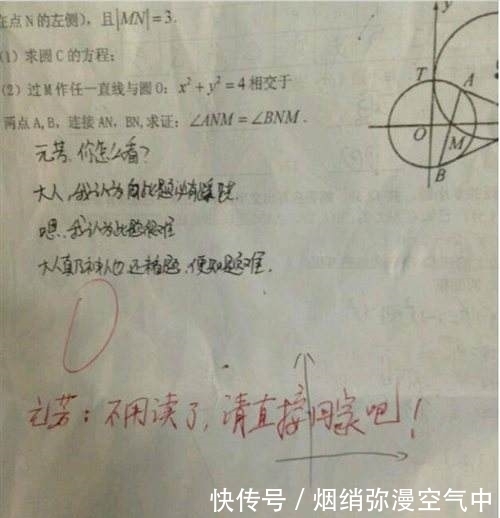 在点N的左侧),且|MN|=3.
(1)求圆C的方程;
(2)过M作任一直线与圆O:x²+y²=4相交于
两点A,B,连接AN,BN,求证:∠ANM=∠BNM.
y
T
A
O
M
B
元芳,你怎么看?
大人,我认为此题
嗯,我认为此题很难
大人真乃神人也,还
元芳:不用读了,请直接回家吧!
快传号/烟绡弥漫空气中